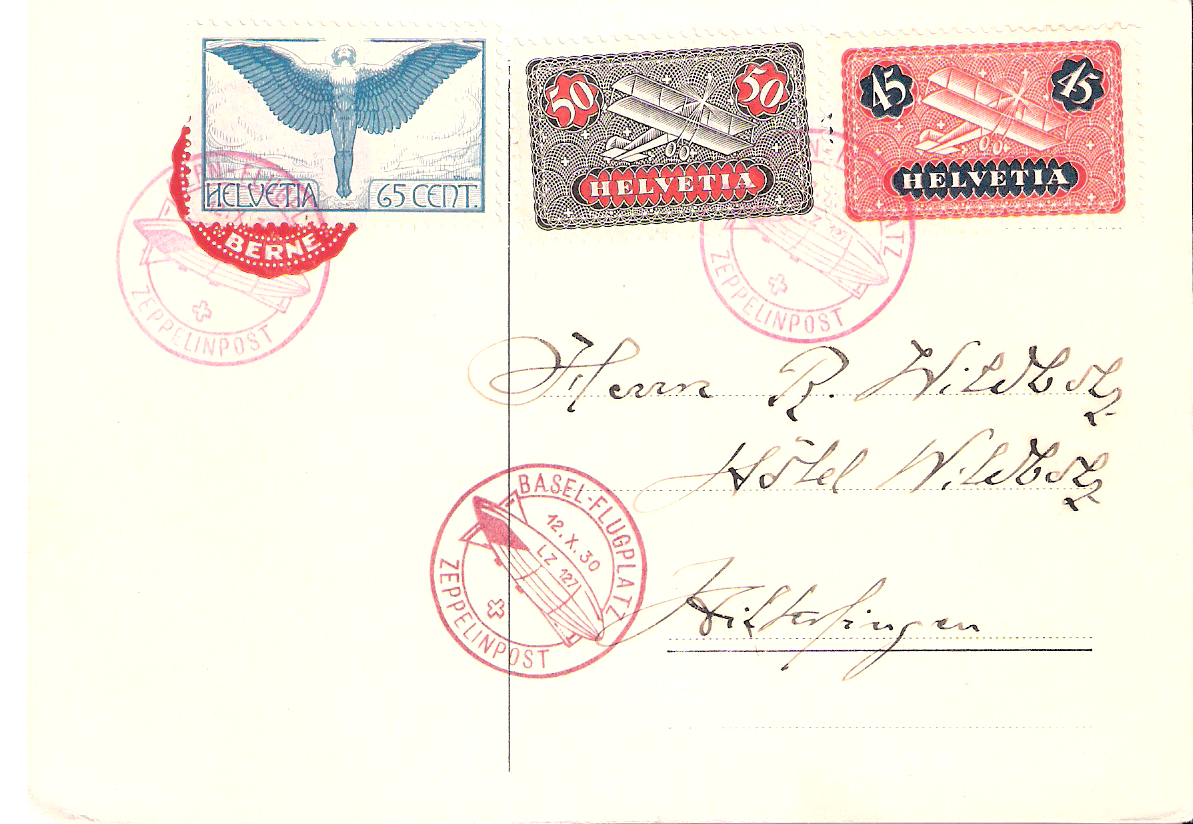 HELVETIA 65 CENT.
50 50
HELVETIA
45 45
HELVETIA
BERNE
ZEPPELINPOST
LZ 127
ZEPPELINPOST
Herrn R. Wildbolz
Hôtel Wildbolz
BASEL-FLUGPLATZ
12.X.30
LZ 127
ZEPPELINPOST
Hilterfingen